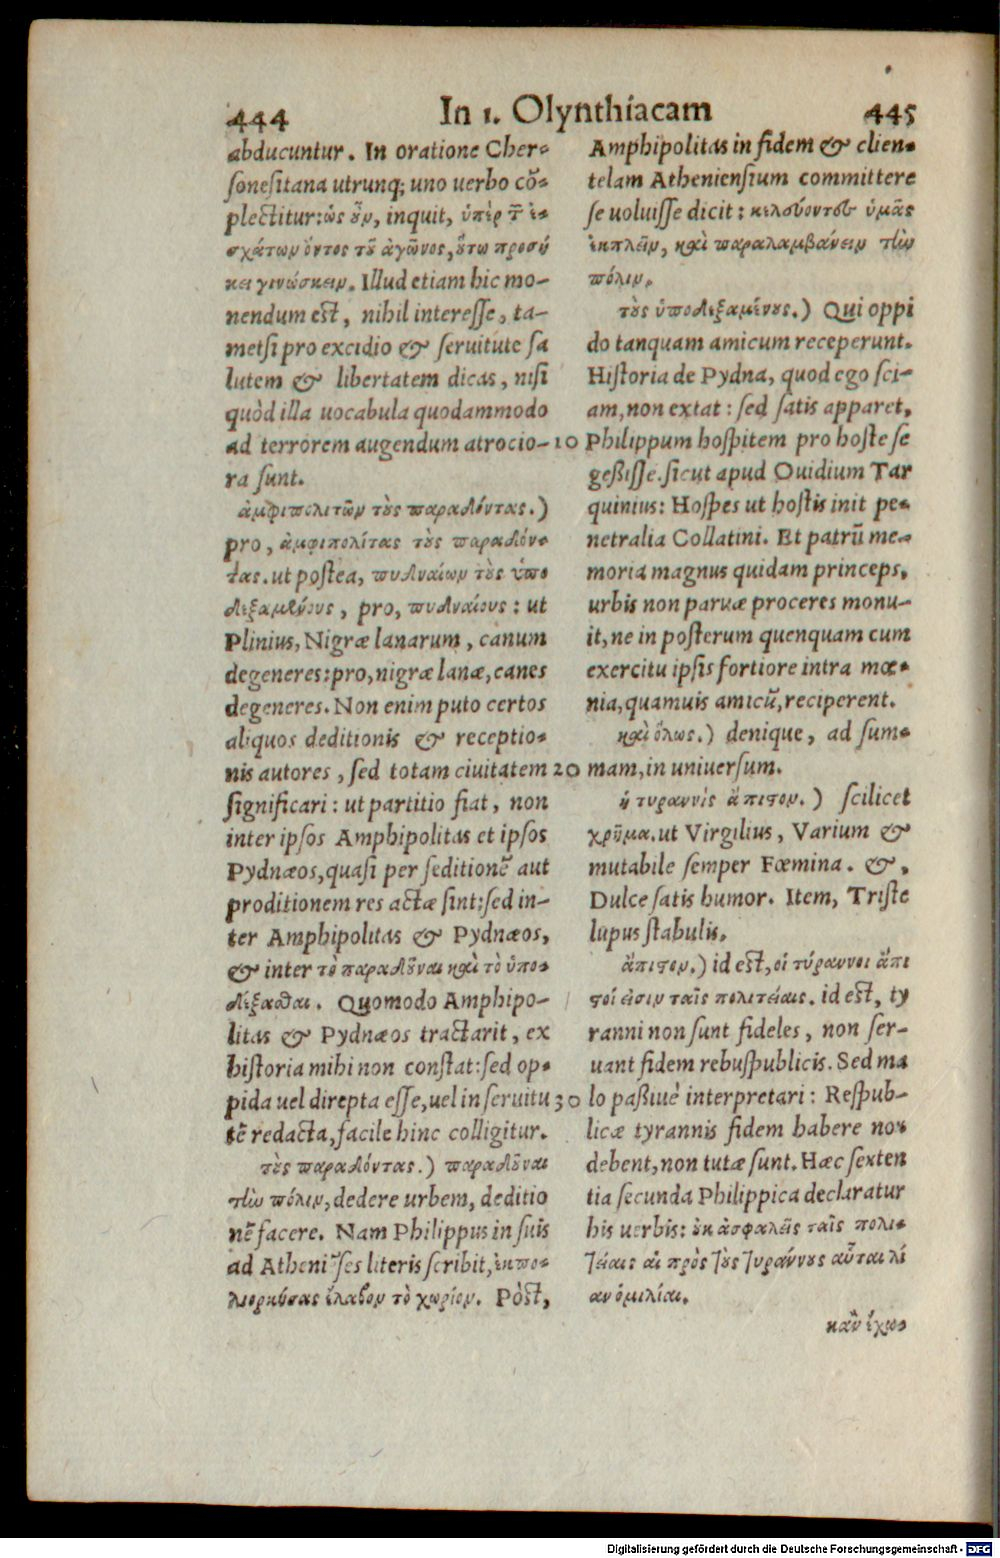 444 In 1. Olynthiacam 445
abducuntur. In oratione Cher-
ſoneſitana utrunq; uno uerbo cõ-
plectitur: ὡς οὖν, inquit, ὑπὲρ τῶν ἐ-
σχάτων ὄντος τοῦ ἀγῶνος, οὕτω προσή
κει γινώσκειν. Illud etiam hic mo-
nendum est, nihil intereſſe, ta-
metſi pro excidio & ſeruitute ſa
lutem & libertatem dicas, niſi
quòd illa uocabula quodammodo
ad terrorem augendum atrocio- 10
ra ſunt.
ἀμφιπολιτῶν τοὺς παραδόντας.)
pro, ἀμφιπολίτας τοὺς παραδόν-
τας. ut poſtea, πυδναίων τοὺς ὑπο
δεξαμένους, pro, πυδναίους: ut
Plinius, Nigræ lanarum, canum
degeneres: pro, nigræ lanæ, canes
degeneres. Non enim puto certos
aliquos deditionis & receptio-
nis autores, ſed totam ciuitatem 20
ſignificari: ut partitio fiat, non
inter ipſos Amphipolitas et ipſos
Pydnæos, quaſi per ſeditionẽ aut
proditionem res actæ ſint: ſed in-
ter Amphipolitas & Pydnæos,
& inter τὸ παραδοῦναι καὶ τὸ ὑπο-
δέξασθαι. Quomodo Amphipo-
litas & Pydnæos tractarit, ex
hiſtoria mihi non conſtat: ſed op-
pida uel direpta eſſe, uel in ſeruitu 30
tẽ redacta, facile hinc colligitur.
τοὺς παραδόντας.) παραδοῦναι
τὴν πόλιν, dedere urbem, deditio
nẽ facere. Nam Philippus in ſuis
ad Atheniẽſes literis ſcribit, ἐκπο-
λιορκήσας ἔλαβον τὸ χωρίον. Pòſt,
Amphipolitas in fidem & clien-
telam Athenienſium committere
ſe uoluiſſe dicit: κελεύοντες ὑμᾶς
ἐκπλεῖν, καὶ παραλαμβάνειν τὴν
πόλιν.
τοὺς ὑποδεξαμένους.) Qui oppi
do tanquam amicum receperunt.
Hiſtoria de Pydna, quod ego ſci-
am, non extat: ſed ſatis apparet,
Philippum hoſpitem pro hoſte ſe
geßiſſe. ſicut apud Ouidium Tar
quinius: Hoſpes ut hoſtis init pe-
netralia Collatini. Et patrũ me-
moria magnus quidam princeps,
urbis non paruæ proceres monu-
it, ne in poſterum quenquam cum
exercitu ipſis fortiore intra mœ-
nia, quamuis amicũ, reciperent.
καὶ ὅλως.) denique, ad ſum-
mam, in uniuerſum.
ἡ τυραννὶς ἄπιστον.) ſcilicet
χρῆμα. ut Virgilius, Varium &
mutabile ſemper Fœmina. &,
Dulce ſatis humor. Item, Triſte
lupus ſtabulis.
ἄπιστον.) id eſt, οἱ τύραννοι ἄπι
στοί εἰσιν ταῖς πολιτείαις. id eſt, ty
ranni non ſunt fideles, non ſer-
uant fidem rebuſpublicis. Sed ma
lo paßiuè interpretari: Reſpub-
licæ tyrannis fidem habere non
debent, non tutæ ſunt. Hæc ſexten
tia ſecunda Philippica declaratur
his uerbis: οὐκ ἀσφαλεῖς ταῖς πολι-
τείαις αἱ πρὸς τοὺς τυράννους αὗται λί
αν ὁμιλίαι.
κἂν ἔχω-
Digitalisierung gefördert durch die Deutsche Forschungsgemeinschaft - DFG